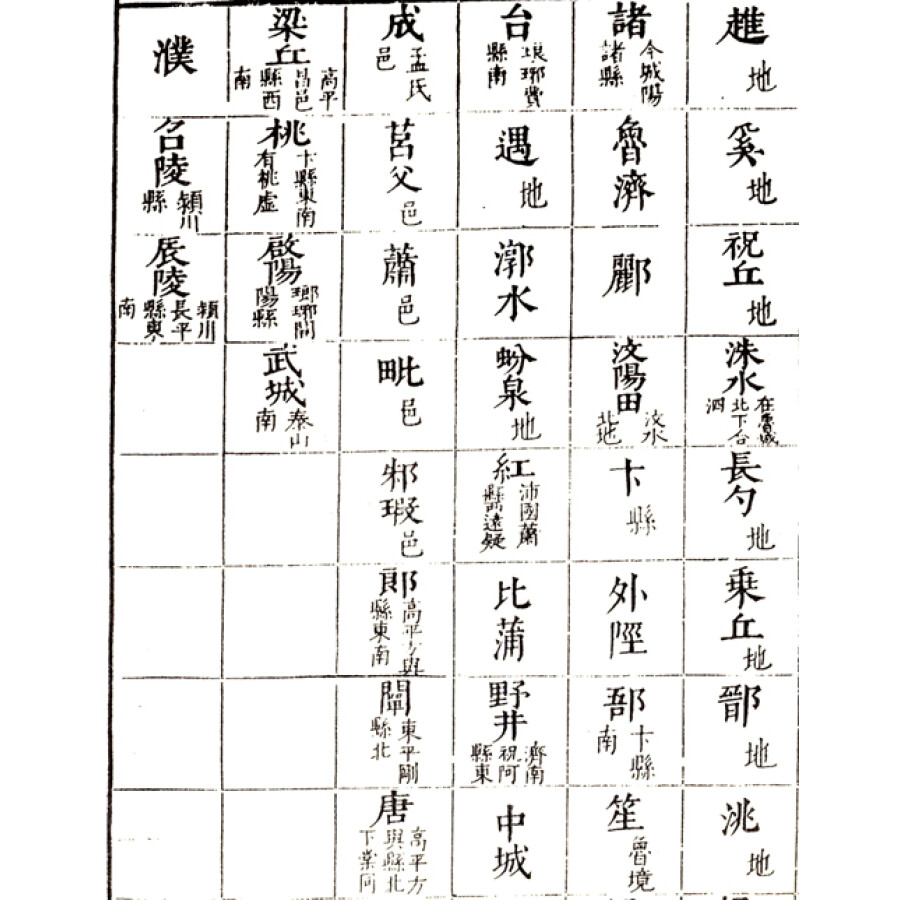 趡 地
奚 地
祝丘 地
洙水 在魯城北下合泗
長勺 地
乗丘 地
鄑 地
洮 地
諸 今城陽諸縣
魯濟
酈
汶陽田 汶水北地
卞 縣
外陘
郚 卞縣南
笙 魯境
台 琅琊費縣南
遇 地
漷水
蚡泉 地
紅 沛國蕭縣西遠疑
比蒲
野井 濟南祝阿縣東
中城
成 孟氏邑
莒父 邑
蕭 邑
毗 邑
邾瑕 邑
郎 高平方與縣東南
闡 東平剛縣北
唐 高平方與縣北下棠同
梁丘 高平昌邑縣西南
桃 卞縣東南有桃虛
啟陽 瑯琊開陽縣
武城 泰山南
濮
召陵 潁川縣
辰陵 潁川長平縣東南